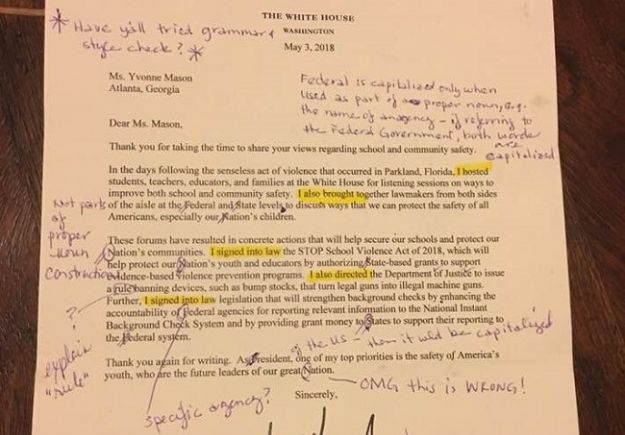 THE WHITE HOUSE
WASHINGTON
May 3, 2018
* Have y'all tried grammar &
style check? *
Ms. Yvonne Mason
Atlanta, Georgia
Federal is capitalized only when
used as part of a proper noun, e.g.
the name of an agency - if referring to
the Federal Government, both words
are
capitalized
Dear Ms. Mason,
Thank you for taking the time to share your views regarding school and community safety.
In the days following the senseless act of violence that occurred in Parkland, Florida, I hosted
students, teachers, educators, and families at the White House for listening sessions on ways to
improve both school and community safety. I also brought together lawmakers from both sides
of the aisle at the Federal and State levels to discuss ways that we can protect the safety of all
Americans, especially our Nation's children.
Not part
of
proper
noun
construction
These forums have resulted in concrete actions that will help secure our schools and protect our
Nation's communities. I signed into law the STOP School Violence Act of 2018, which will
help protect our Nation's youth and educators by authorizing State-based grants to support
evidence-based violence prevention programs. I also directed the Department of Justice to issue
a rule banning devices, such as bump stocks, that turn legal guns into illegal machine guns.
Further, I signed into law legislation that will strengthen background checks by enhancing the
accountability of Federal agencies for reporting relevant information to the National Instant
Background Check System and by providing grant money to States to support their reporting to
the Federal system.
?
explain
"rule"
of the US - then it would be capitalized
Thank you again for writing. As President, one of my top priorities is the safety of America's
youth, who are the future leaders of our great Nation.
OMG this is WRONG!
specific agency?
Sincerely,